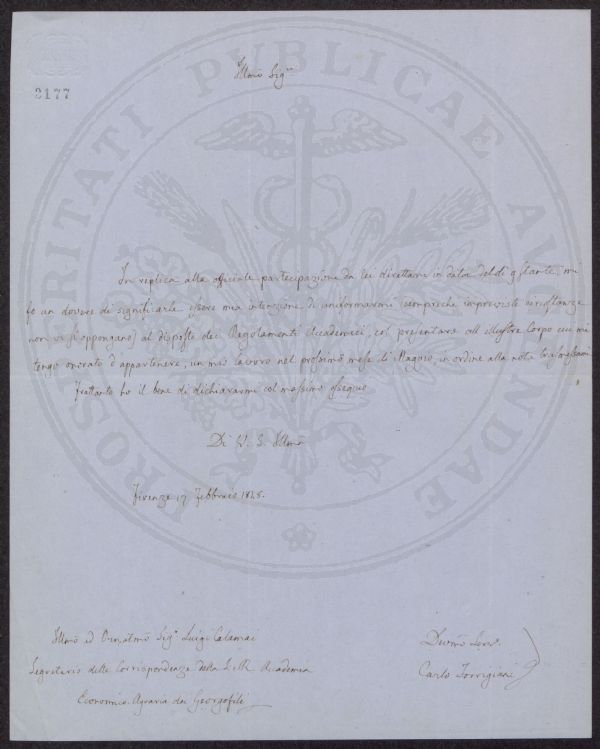 PROSPERITATI PUBLICAE AUGENDAE
2177
Illmo Sigre
In replica alla officiale partecipazione da Lei direttami in data del dì 9 stante, mi
fo un dovere di significarle essere mia intenzione di uniformarmi (sempreché impreviste circostanze
non vi si oppongano) al disposto dei Regolamenti Accademici, col presentare all'illustre Corpo cui mi
tengo onorato d'appartenere, un mio lavoro nel prossimo mese di Maggio, in ordine alla nota trasmessami.
Frattanto ho il bene di dichiararmi col massimo ossequio
Di V. S. Illma
Firenze 17 Febbraio 1845.
Illmo ed Ornatmo Sigr Luigi Calamai
Segretario delle Corrispondenze della I. e R. Accademia
Economico-Agraria dei Georgofili
Devmo Serv.
Carlo Torrigiani